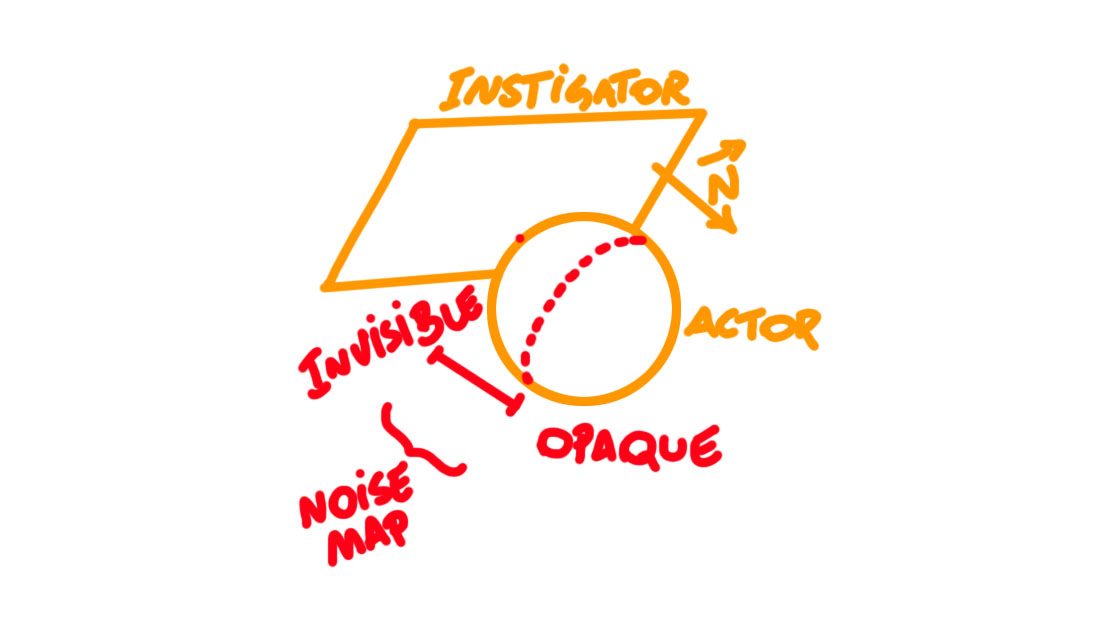 INSTIGATOR
N
ACTOR
INVISIBLE
OPAQUE
NOISE
MAP